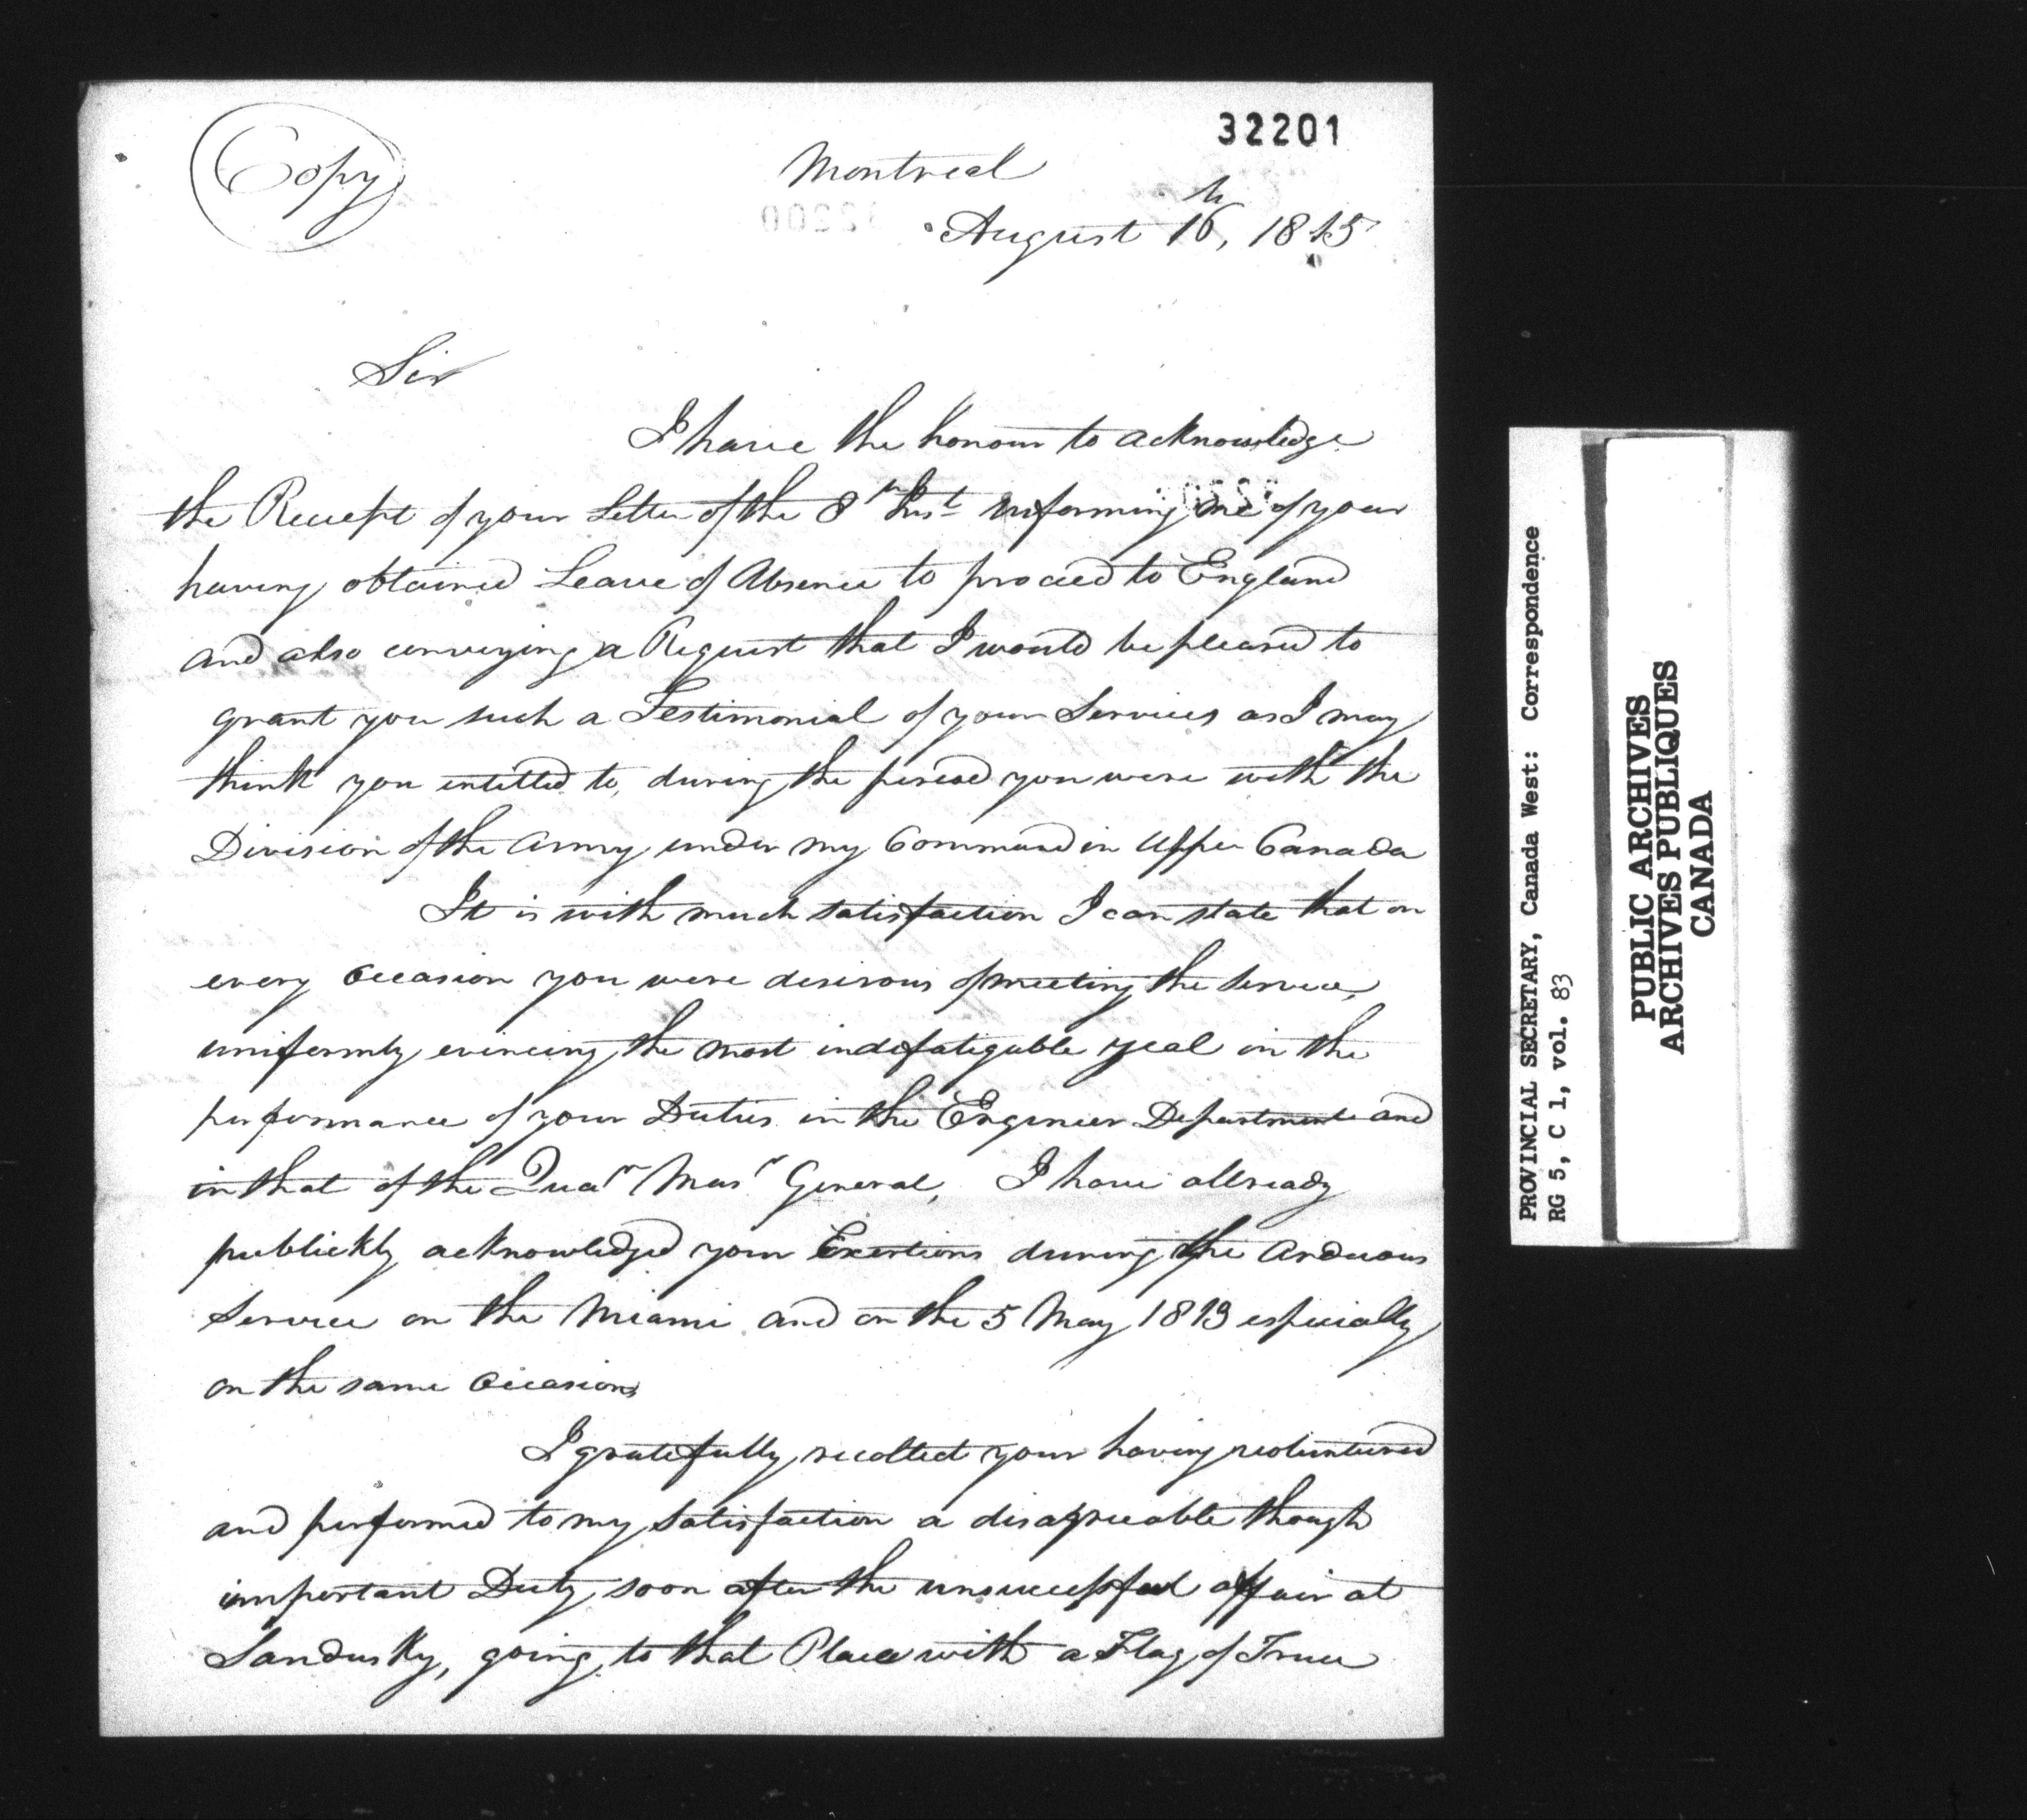 32201
Copy
Montreal
August 16th, 1815
Sir
I have the honour to acknowledge
the Receipt of your Letter of the 8th Inst informing me of your
having obtained Leave of Absence to proceed to England
and also conveying a Request that I would be pleased to
grant you such a Testimonial of your Services as I may
think you intitled to, during the period you were with the
Division of the Army under my Command in Upper Canada
It is with much satisfaction I can state that on
every Occasion you were desirous of meeting the Service,
uniformly evincing the most indefatigable zeal in the
performance of your Duties in the Engineer Department and
in that of the Quar Masr General, I have allready
publickly acknowledged your Exertions during the Arduous
Service on the Miami and on the 5 May 1813 especially
on the same Occasion,
I gratefully recollect your having voluntered
and performed to my satisfaction a disagreeable though
important Duty soon after the unsuccessful affair at
Sandusky, going to that Place with a Flag of Truce
PROVINCIAL SECRETARY, Canada West: Correspondence
RG 5, C 1, vol. 83
PUBLIC ARCHIVES
ARCHIVES PUBLIQUES
CANADA